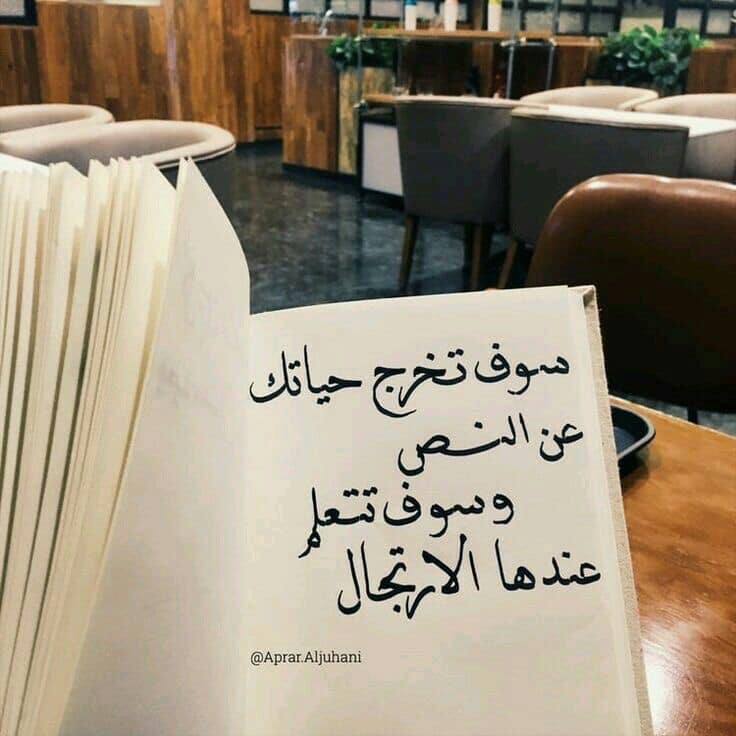 سوف تخرج حياتك
عن النص
وسوف تتعلم
عندها الارتجال
@Aprar.Aljuhani